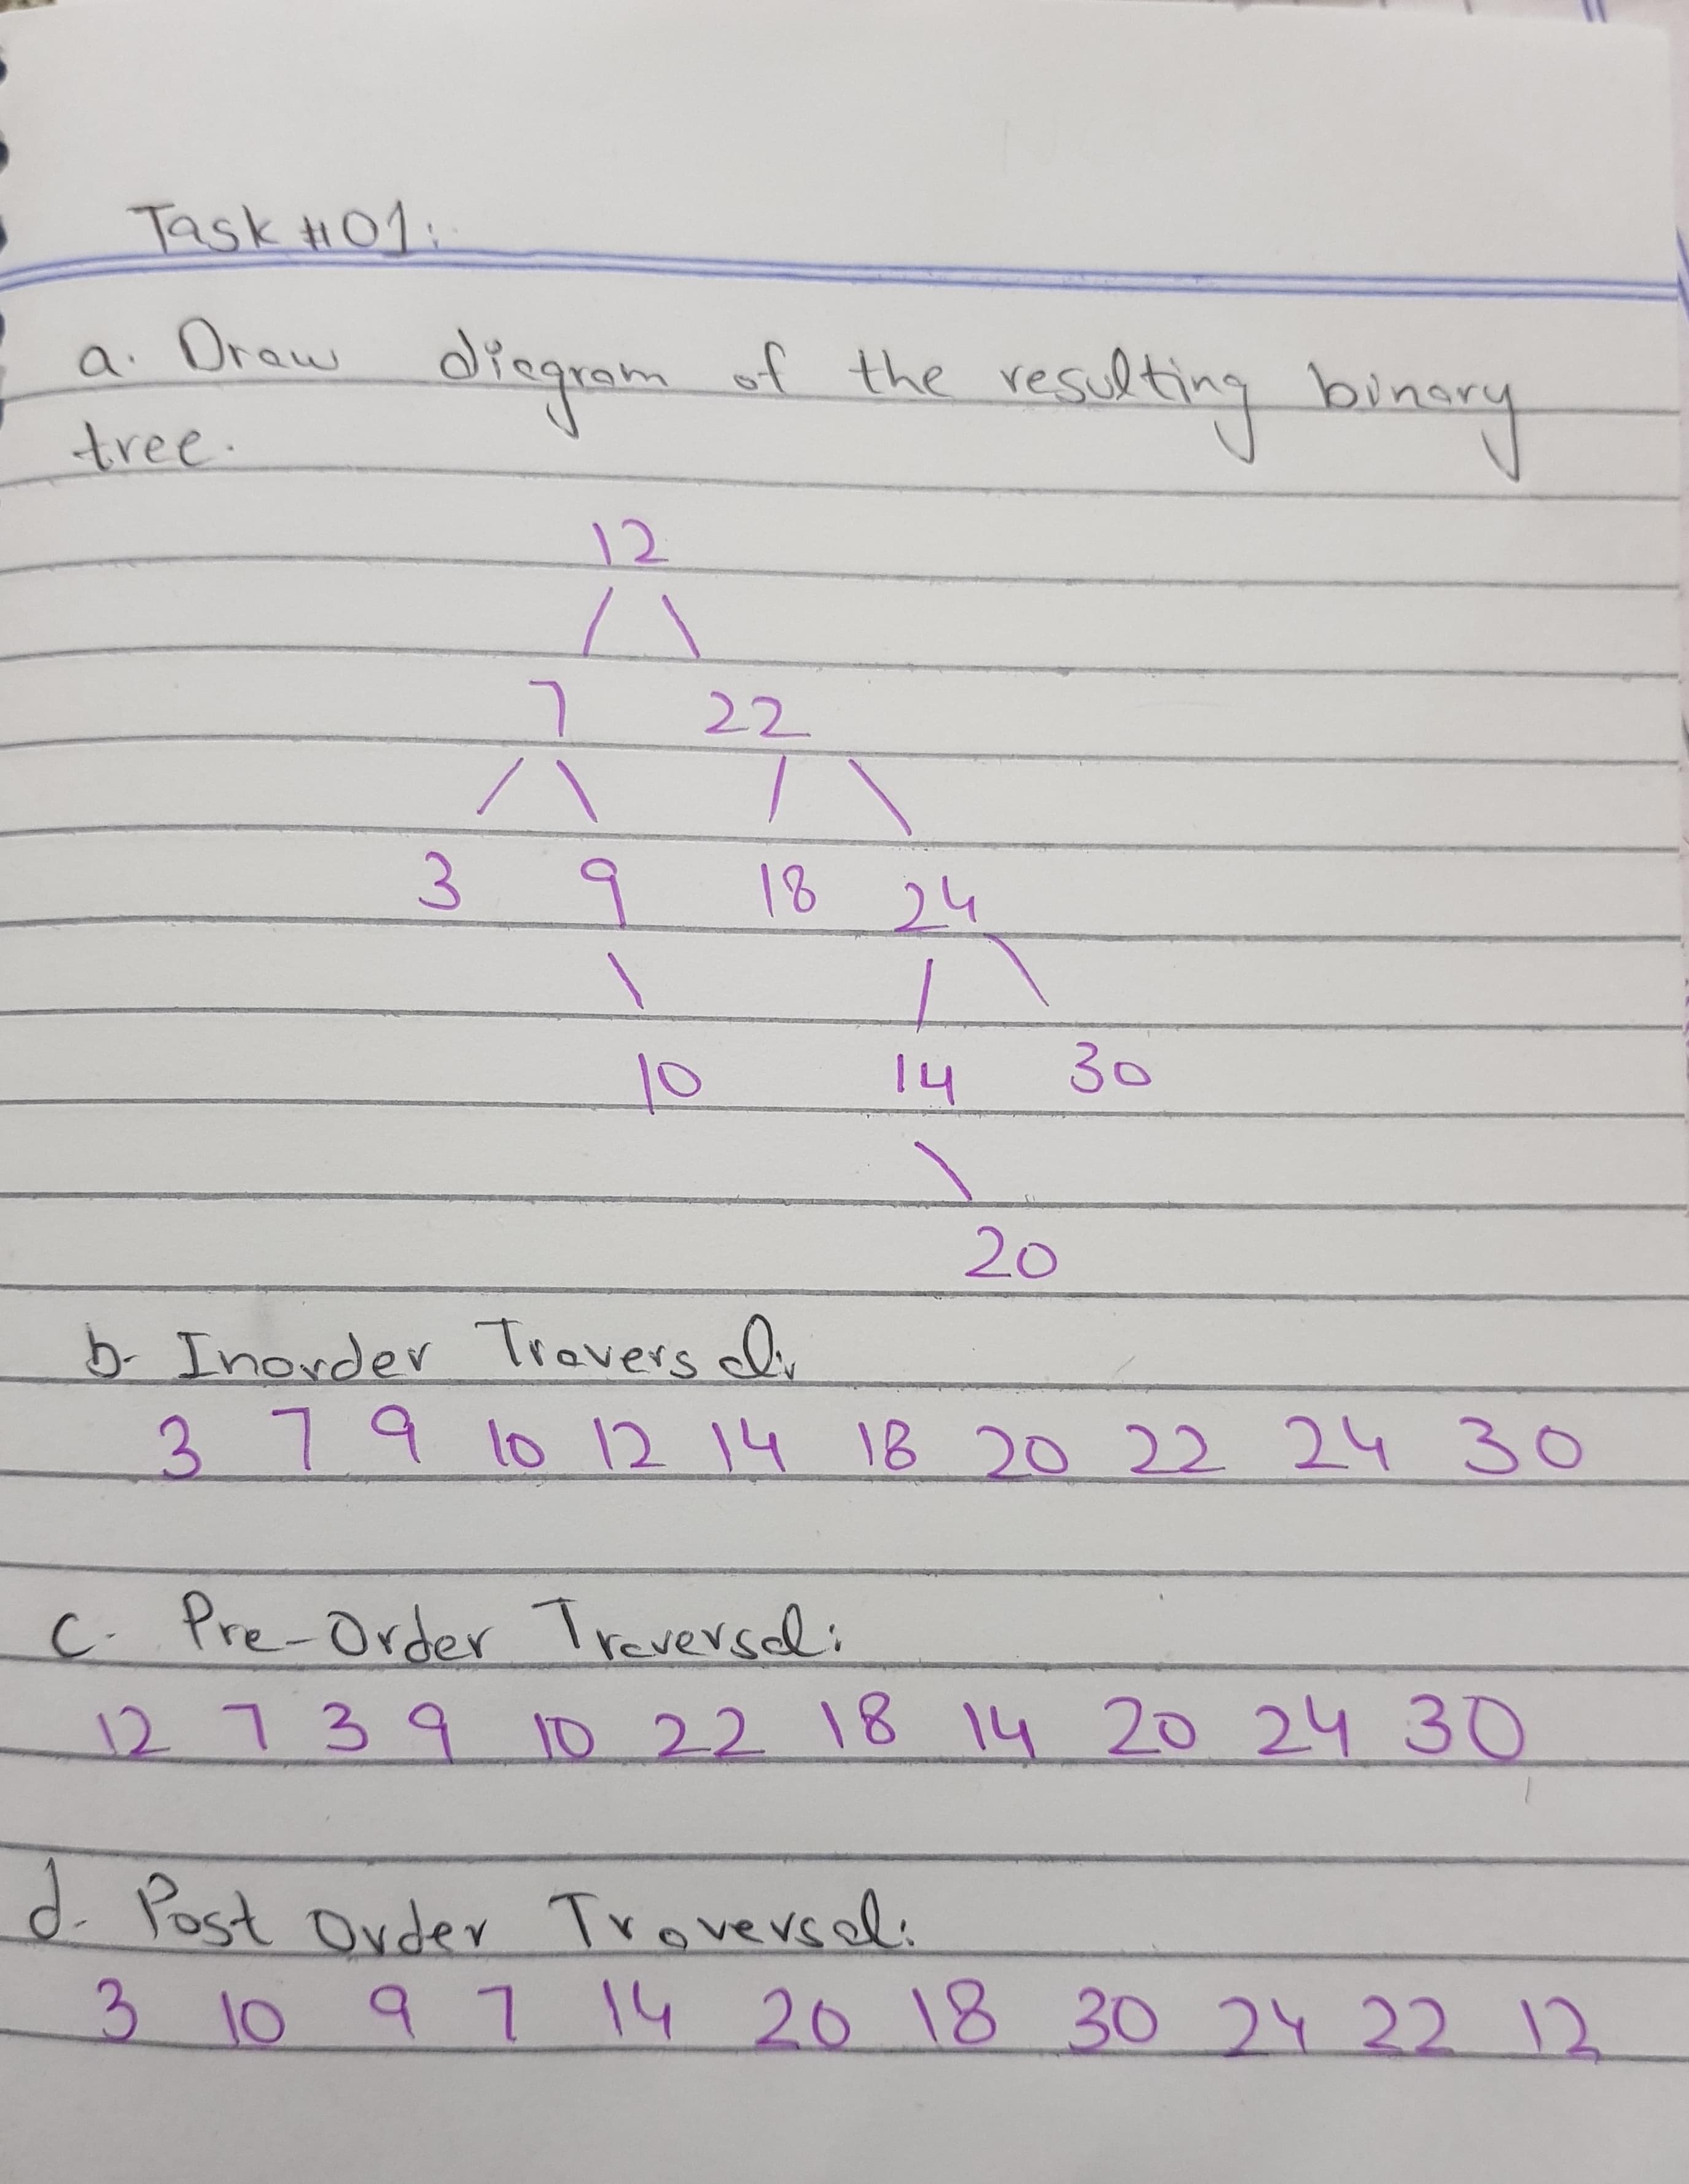 Task #01:
a. Draw diagram of the resulting binary
tree.
12
7 22
3 9 18 24
10 14 30
20
b- Inorder Traversal:
3 7 9 10 12 14 18 20 22 24 30
c- Pre-Order Traversal:
12 7 3 9 10 22 18 14 20 24 30
d- Post Order Traversal:
3 10 9 7 14 20 18 30 24 22 12